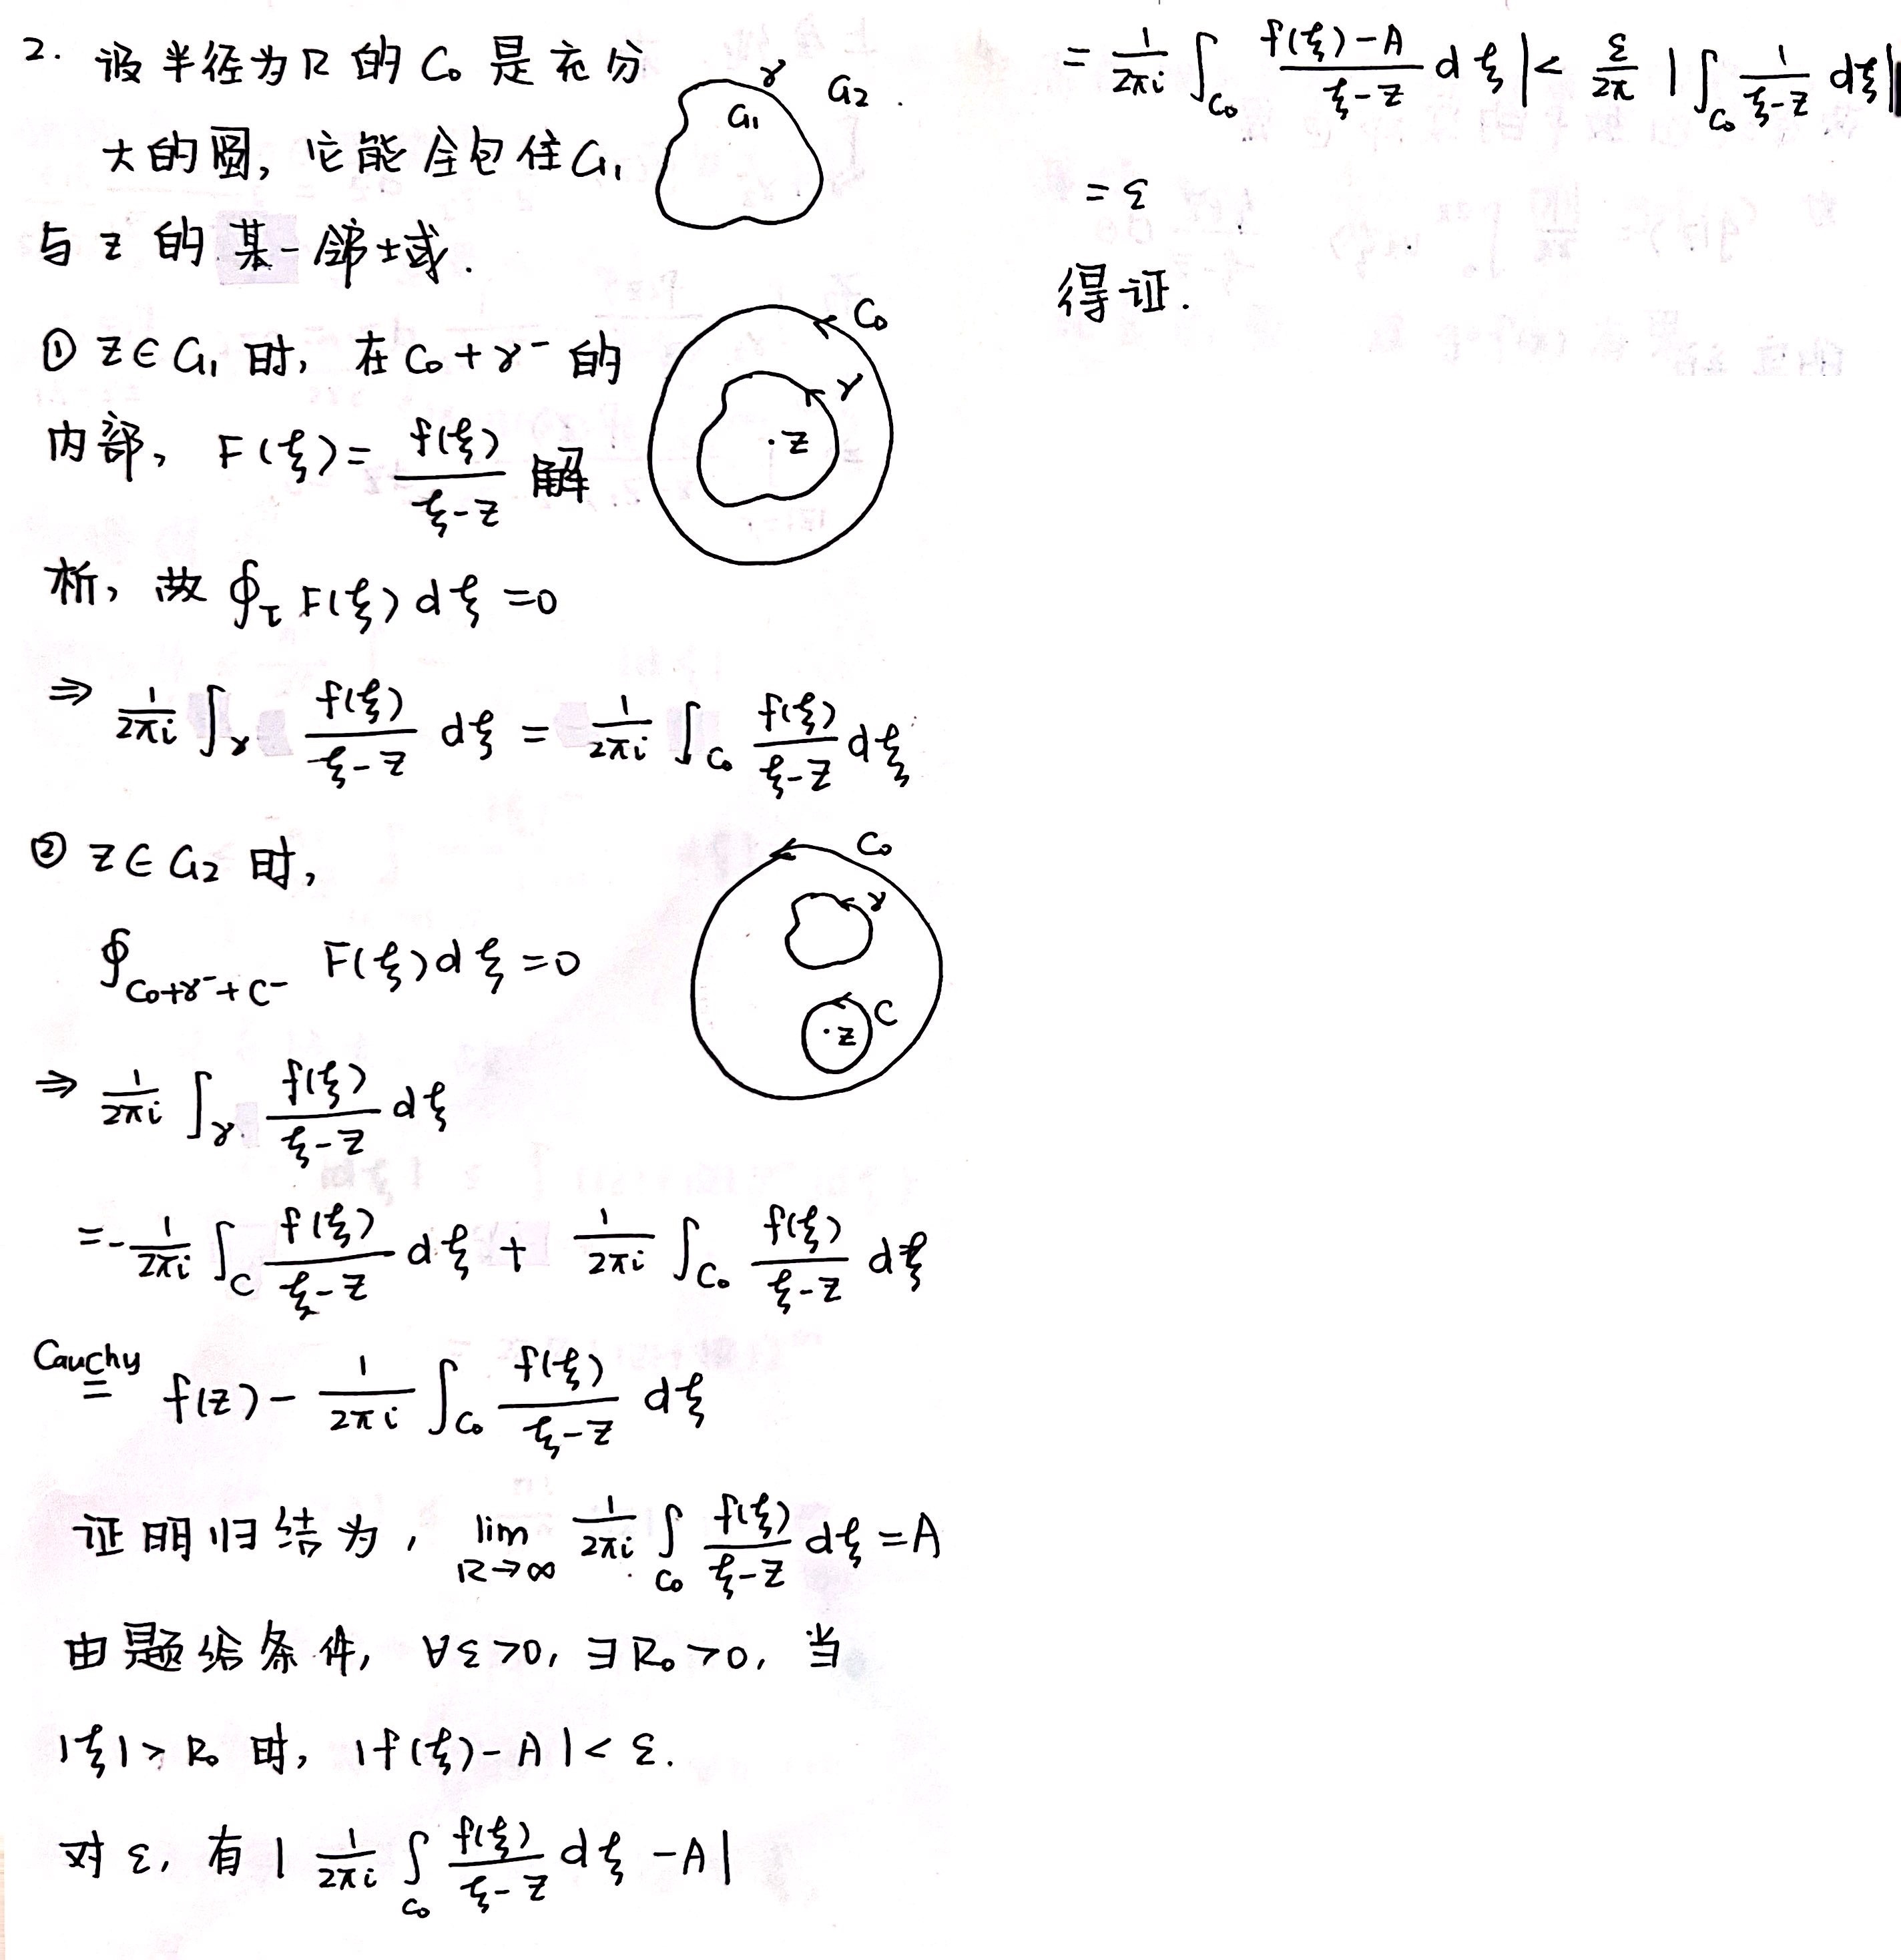 2. 设半径为R的 C₀ 是充分
大的圆, 它能全包住G₁
与 z 的某一邻域.
γ G₁ G₂
① z∈G₁ 时, 在 C₀+γ⁻ 的
内部, F(ξ)= f(ξ)/(ξ-z) 解
析, 故 ∮_τ F(ξ) dξ =0
C₀ γ ·z
⇒ 1/(2πi) ∫_γ f(ξ)/(ξ-z) dξ = 1/(2πi) ∫_C₀ f(ξ)/(ξ-z) dξ
② z∈G₂ 时,
∮_{C₀+γ⁻+C⁻} F(ξ)dξ =0
C₀ γ C ·z
⇒ 1/(2πi) ∫_γ f(ξ)/(ξ-z) dξ
=-1/(2πi) ∫_C f(ξ)/(ξ-z) dξ + 1/(2πi) ∫_C₀ f(ξ)/(ξ-z) dξ
Cauchy = f(z) - 1/(2πi) ∫_C₀ f(ξ)/(ξ-z) dξ
证明归结为, lim_{R→∞} 1/(2πi) ∫_C₀ f(ξ)/(ξ-z) dξ =A
由题给条件, ∀ε>0, ∃R₀>0, 当
|ξ|>R₀ 时, |f(ξ)-A|<ε.
对 ε, 有 | 1/(2πi) ∫_C₀ f(ξ)/(ξ-z) dξ -A|
= 1/(2πi) ∫_C₀ (f(ξ)-A)/(ξ-z) dξ |< ε/(2π) |∫_C₀ 1/(ξ-z) dξ|
= ε
得证.